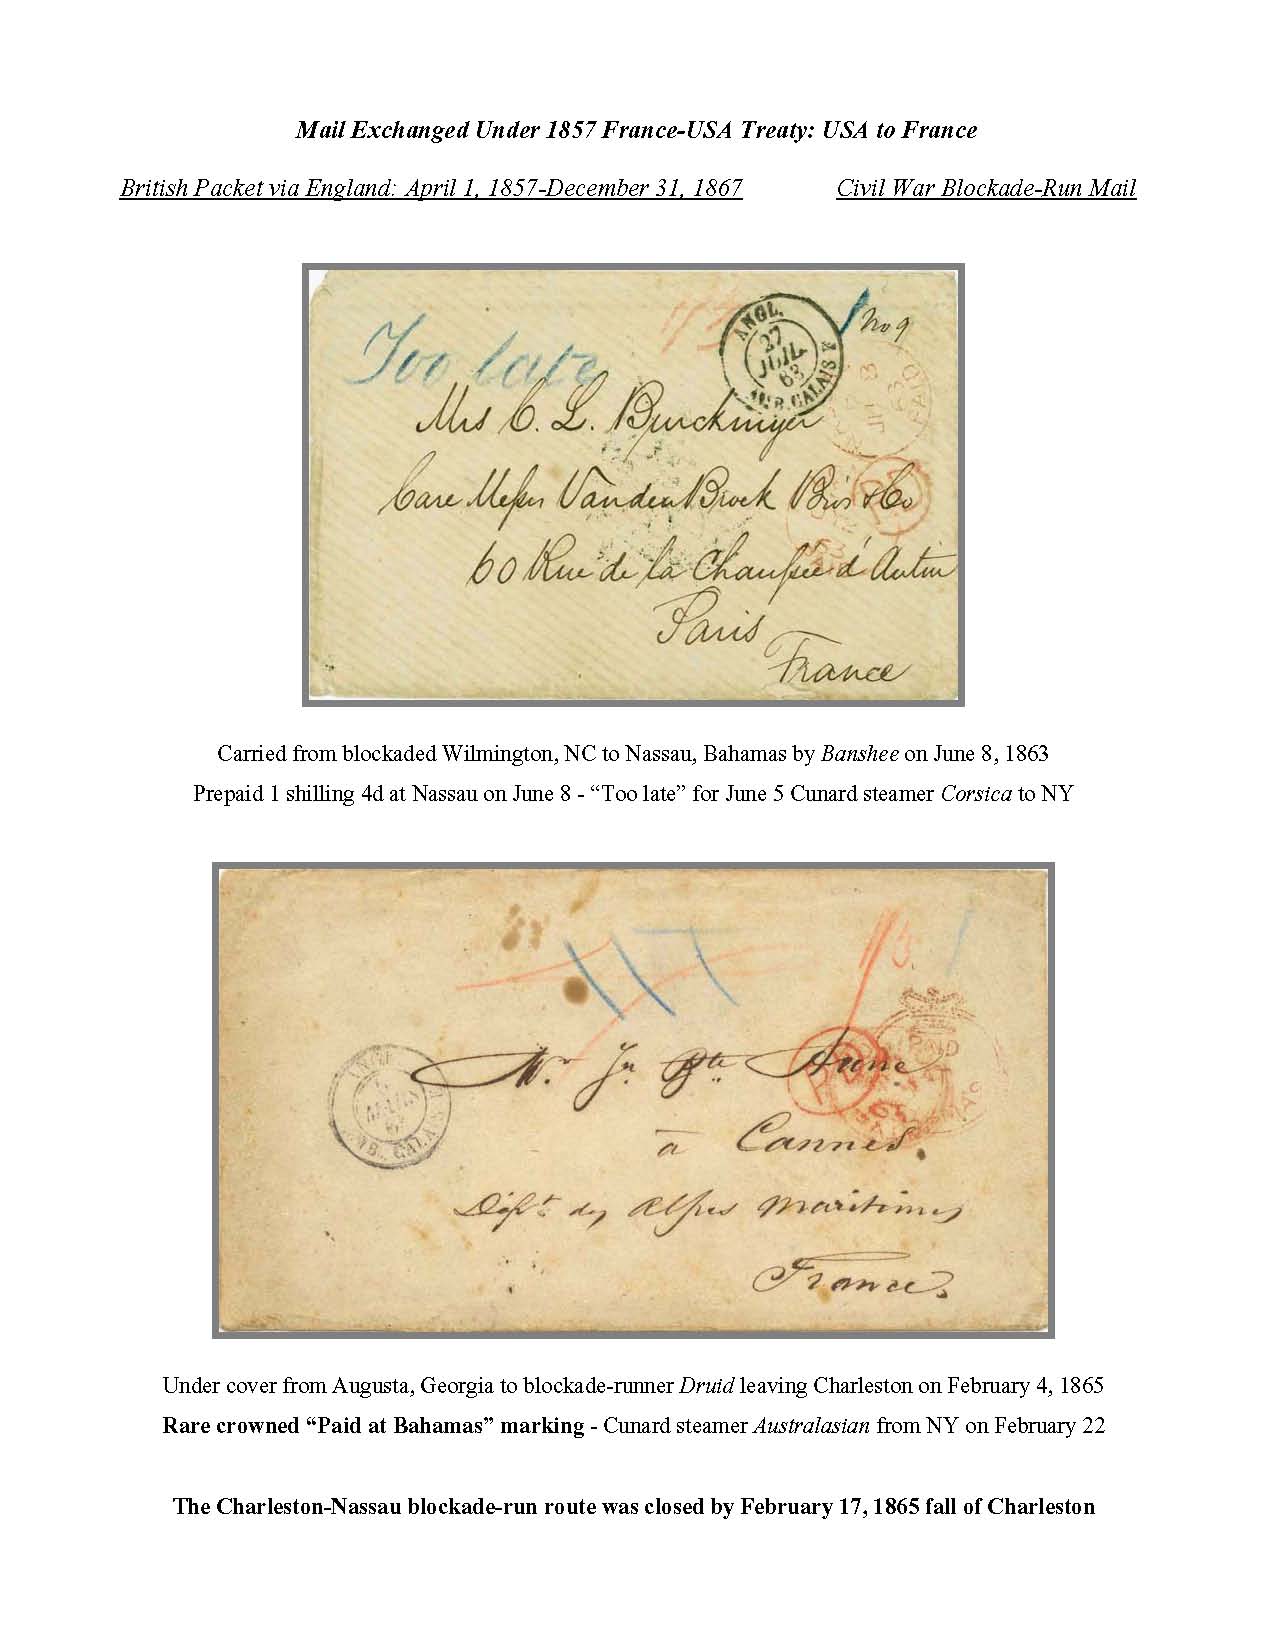 Mail Exchanged Under 1857 France-USA Treaty: USA to France
British Packet via England: April 1, 1857-December 31, 1867 Civil War Blockade-Run Mail
Too late
ANGL.
27
JUIL
63
AMB. CALAIS
No 9
PAID
Mrs C. L. Burckmyer
Care Messrs VandenBroek Bros & Co
PD
60 Rue de la Chaussée d'Antin
Paris
France
Carried from blockaded Wilmington, NC to Nassau, Bahamas by Banshee on June 8, 1863
Prepaid 1 shilling 4d at Nassau on June 8 - “Too late” for June 5 Cunard steamer Corsica to NY
PAID
PD
Mr Jn Bte
à Cannes.
Dépt des Alpes Maritimes
France.
Under cover from Augusta, Georgia to blockade-runner Druid leaving Charleston on February 4, 1865
Rare crowned “Paid at Bahamas” marking - Cunard steamer Australasian from NY on February 22
The Charleston-Nassau blockade-run route was closed by February 17, 1865 fall of Charleston